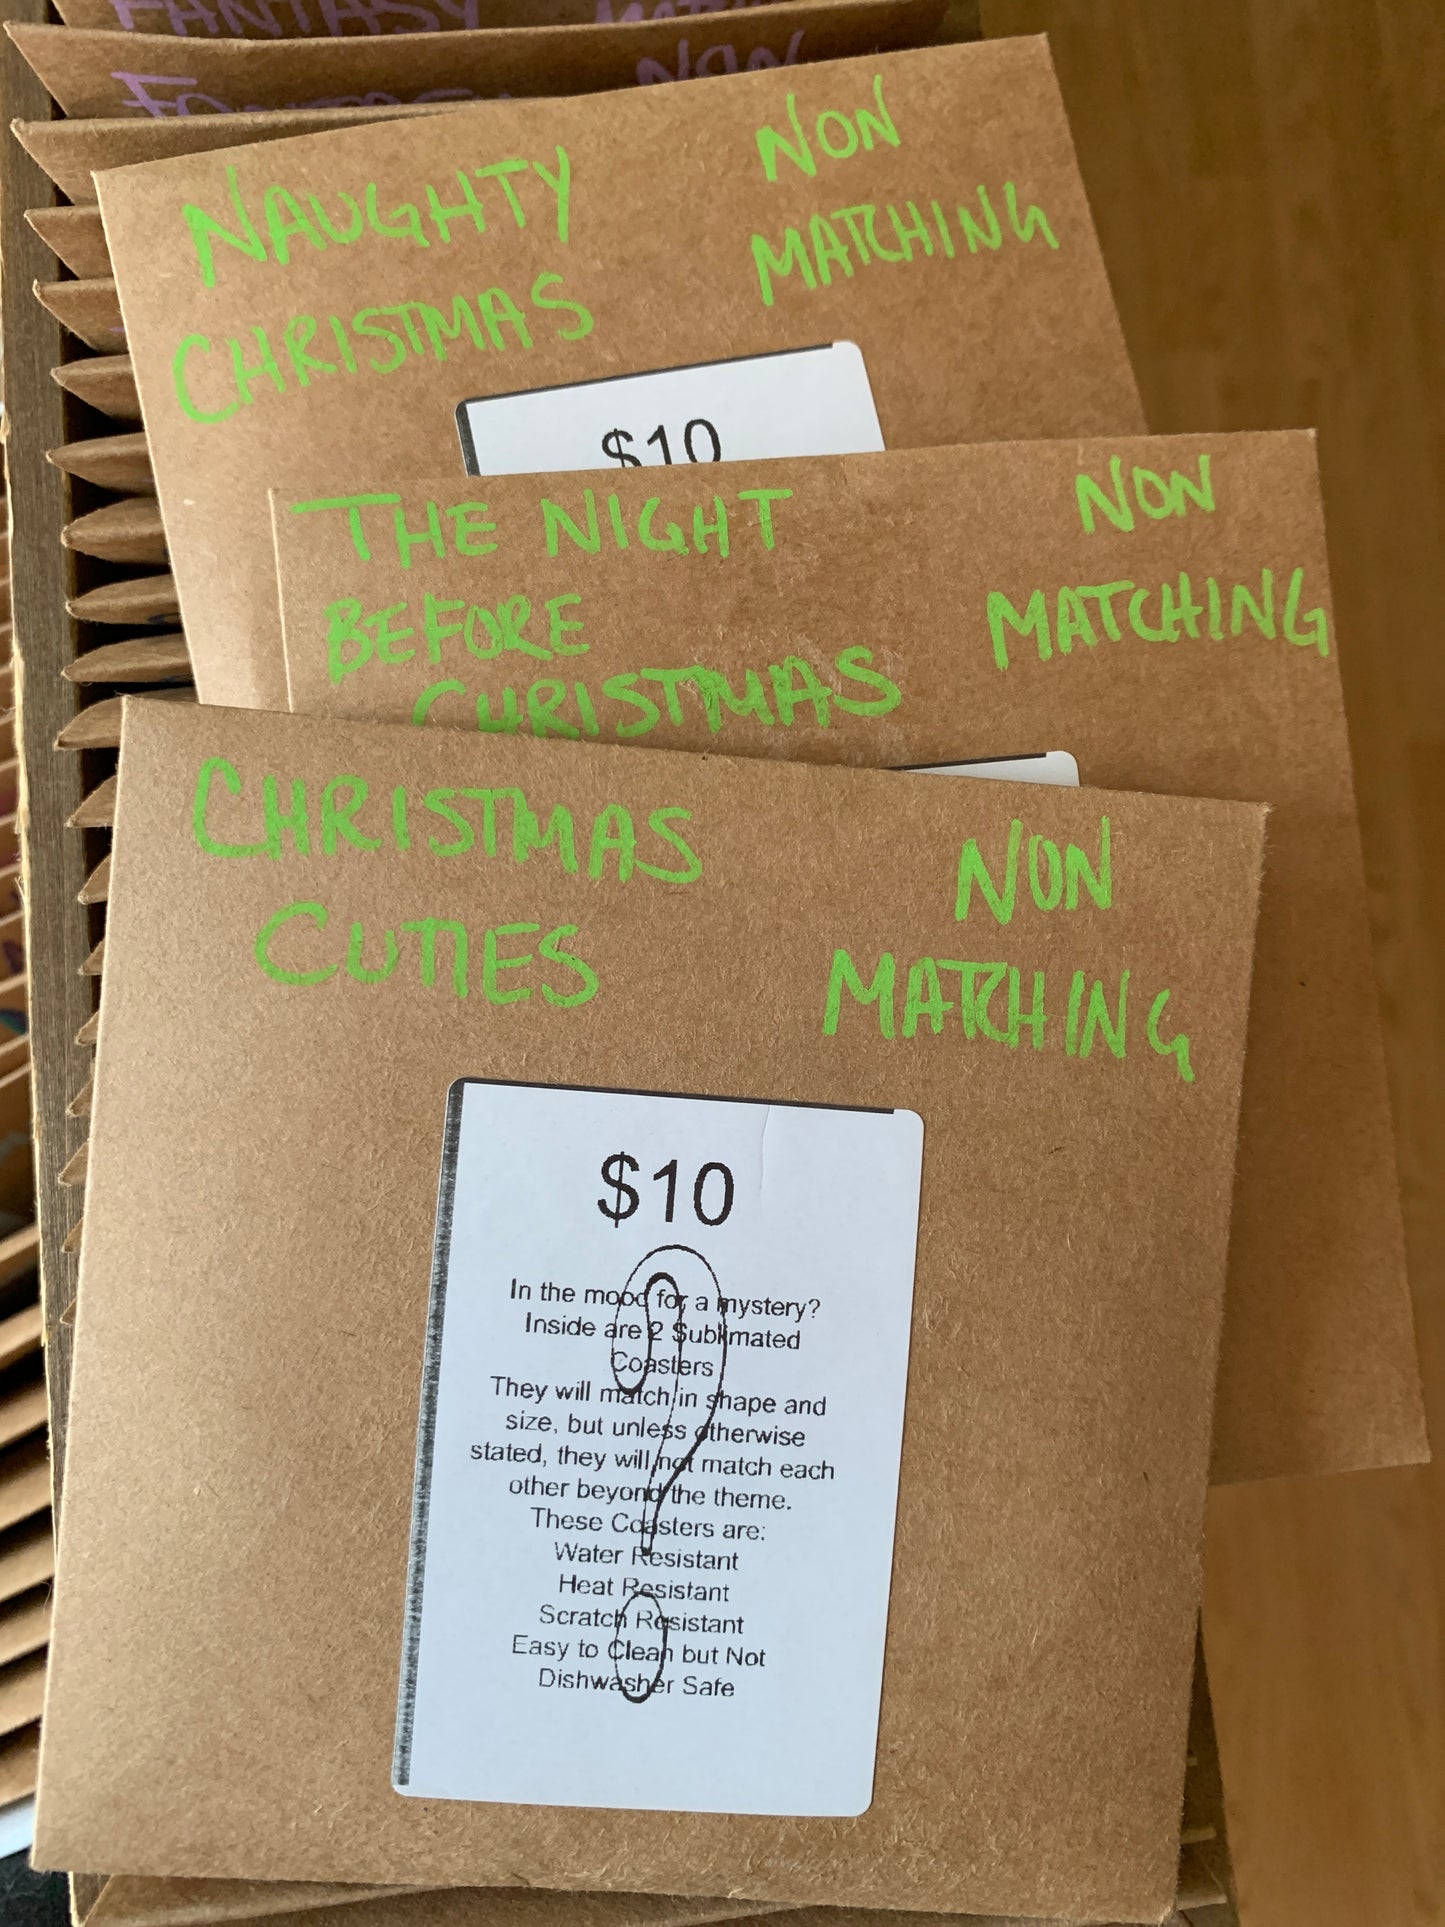 FANTASY
FANTASY NON
NAUGHTY NON
CHRISTMAS MATCHING
$10
THE NIGHT NON
BEFORE MATCHING
CHRISTMAS
CHRISTMAS NON
CUTIES MATCHING
$10
In the mood for a mystery?
Inside are 2 Sublimated
Coasters
They will match in shape and
size, but unless otherwise
stated, they will not match each
other beyond the theme.
These Coasters are:
Water Resistant
Heat Resistant
Scratch Resistant
Easy to Clean but Not
Dishwasher Safe